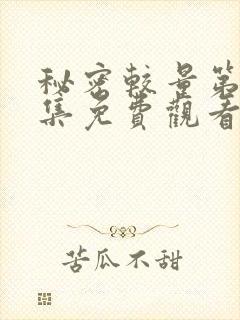 秘密較量第
集免費觀看
苦瓜不甜